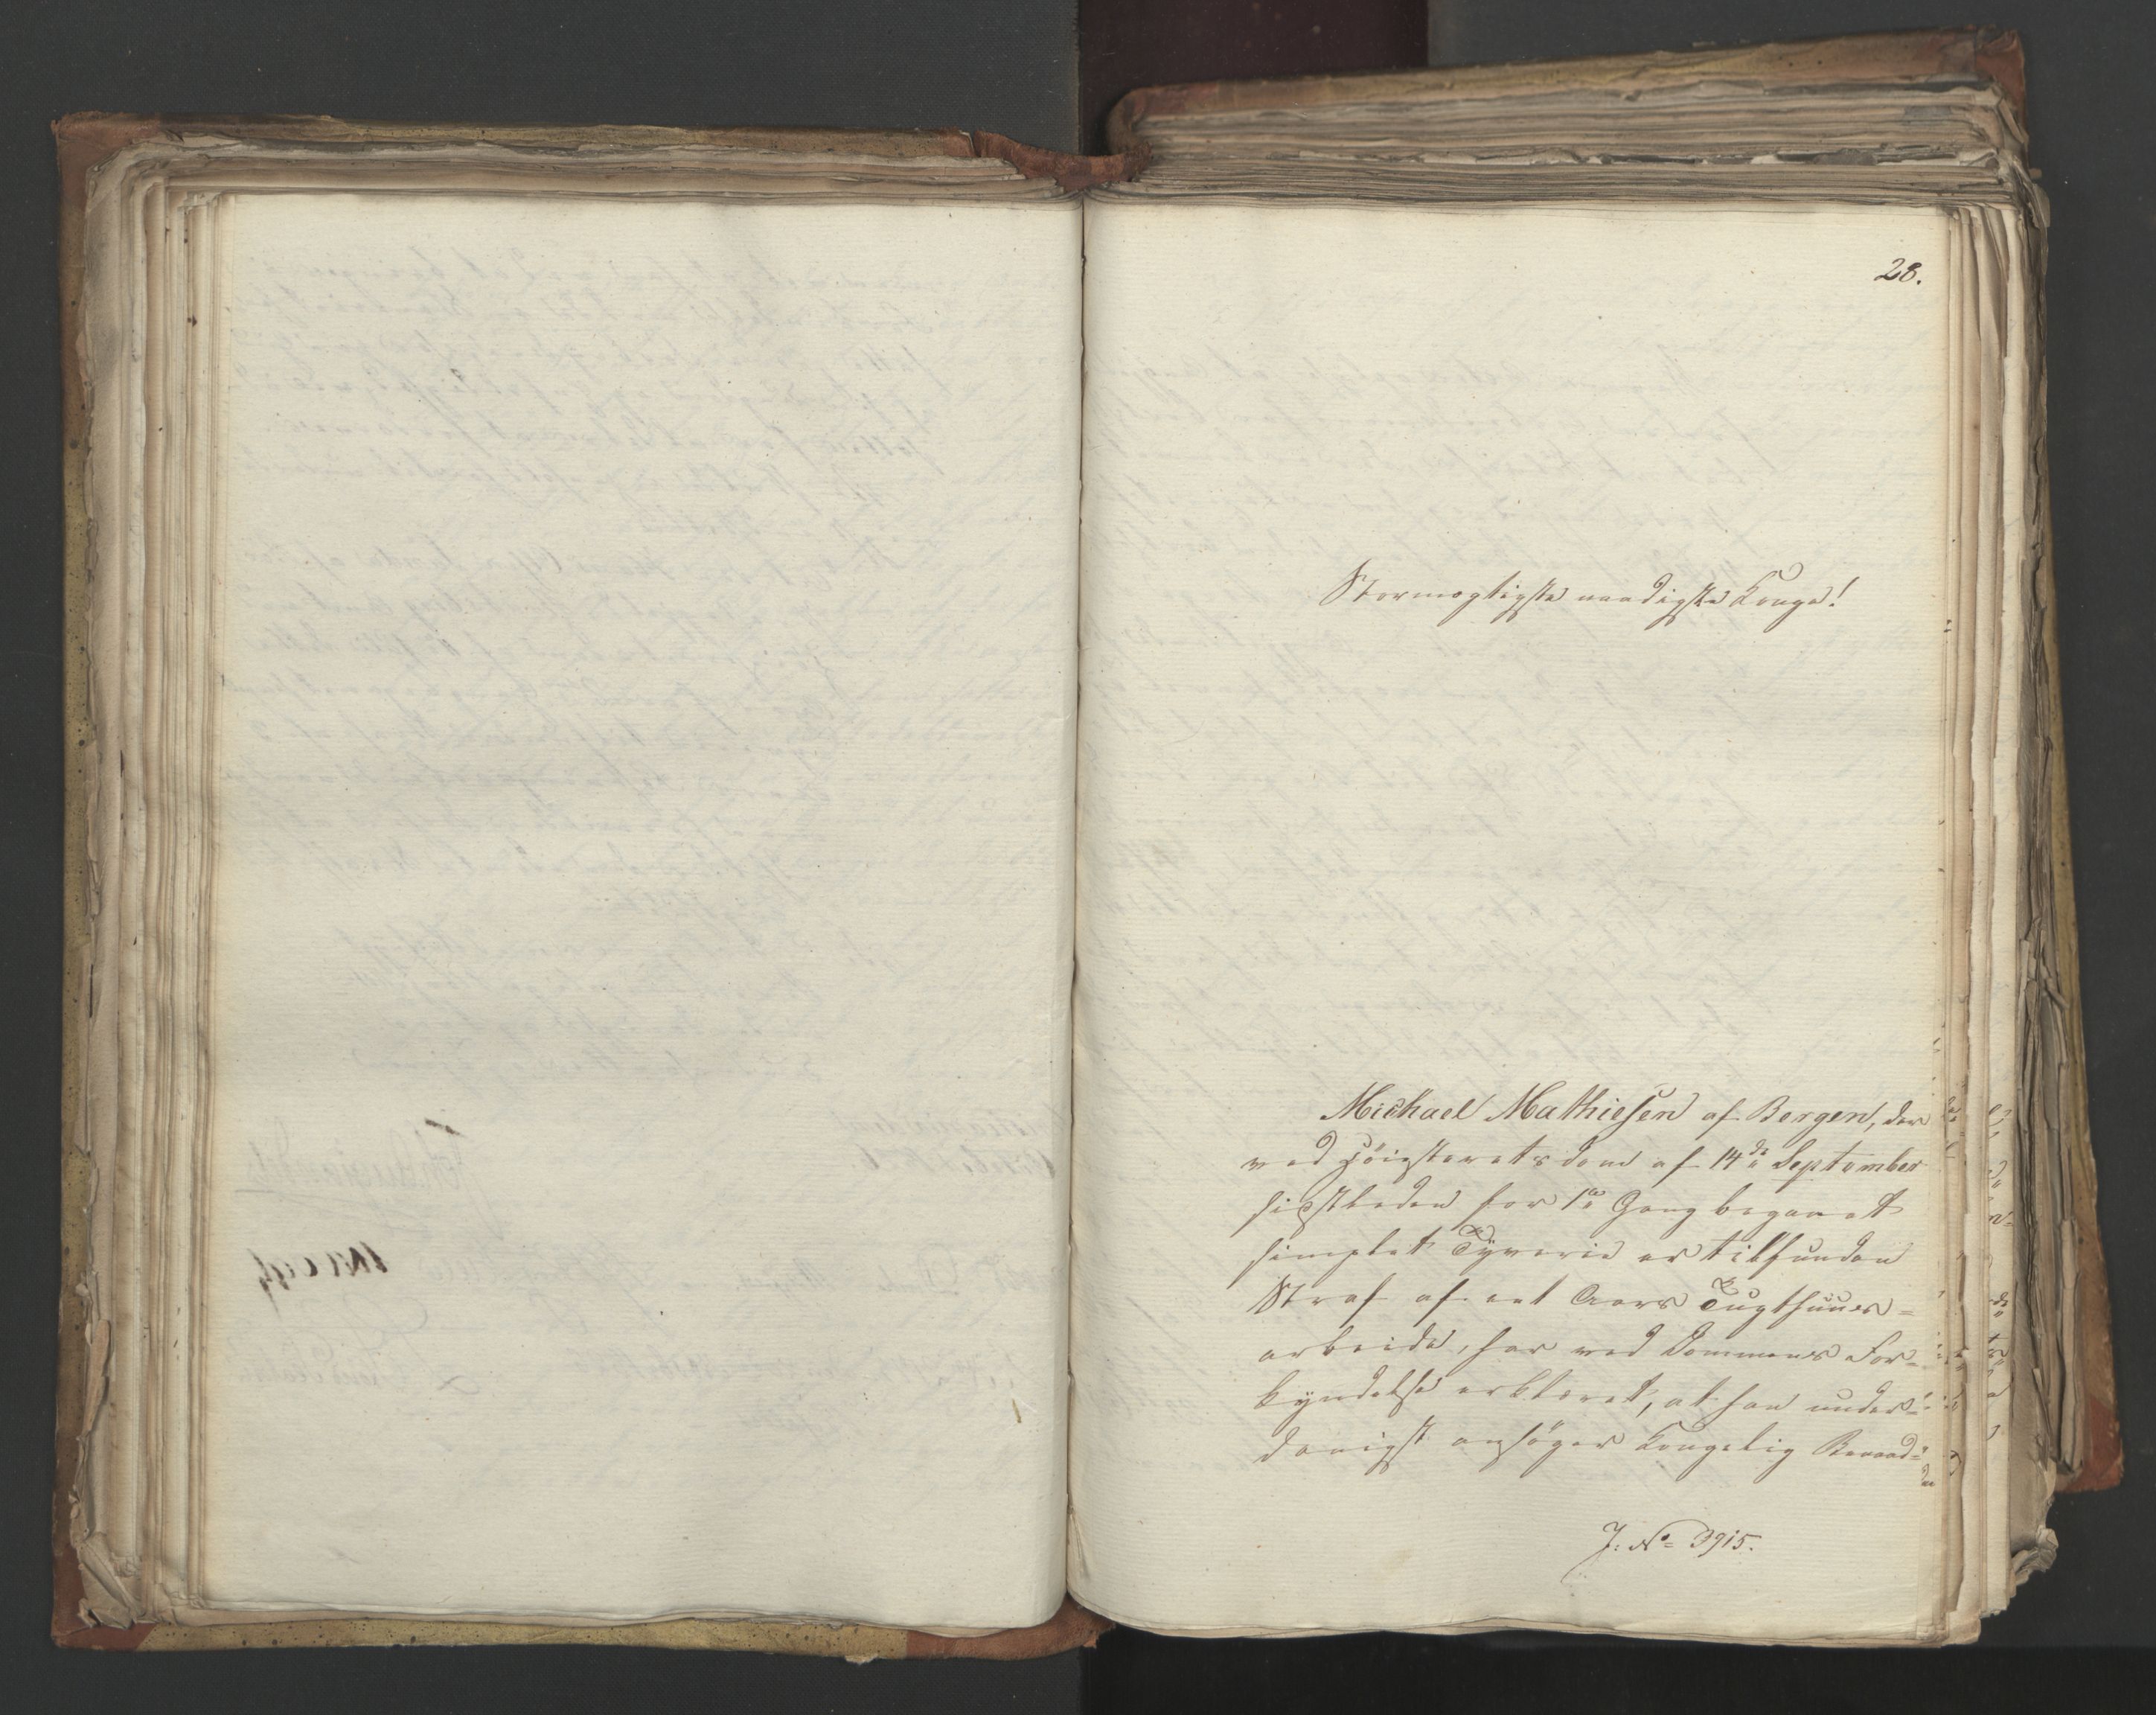 28.
Stormægtigste naadigste Konge!
Michael Mathiesen af Bergen, der
ved Höiesterets dom af 14de September
sidstleden for 1ste Gang begaaet
simpelt Tyverie er tilfunden
Straf af eet Aars Tugthuus=
arbeide, har ved Dommens For=
kyndelse erklæret, at han under=
danigst ansöger Kongelig Benaad=
J: No 3915.